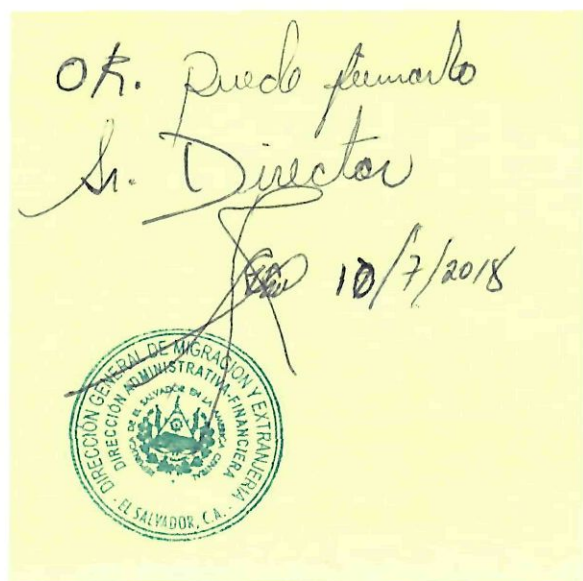 OK. Puedo firmarlo
Sr. Director
10/7/2018
DIRECCIÓN GENERAL DE MIGRACIÓN Y EXTRANJERIA
DIRECCIÓN ADMINISTRATIVA-FINANCIERA
REPUBLICA DE EL SALVADOR EN LA AMERICA CENTRAL
EL SALVADOR, C.A.